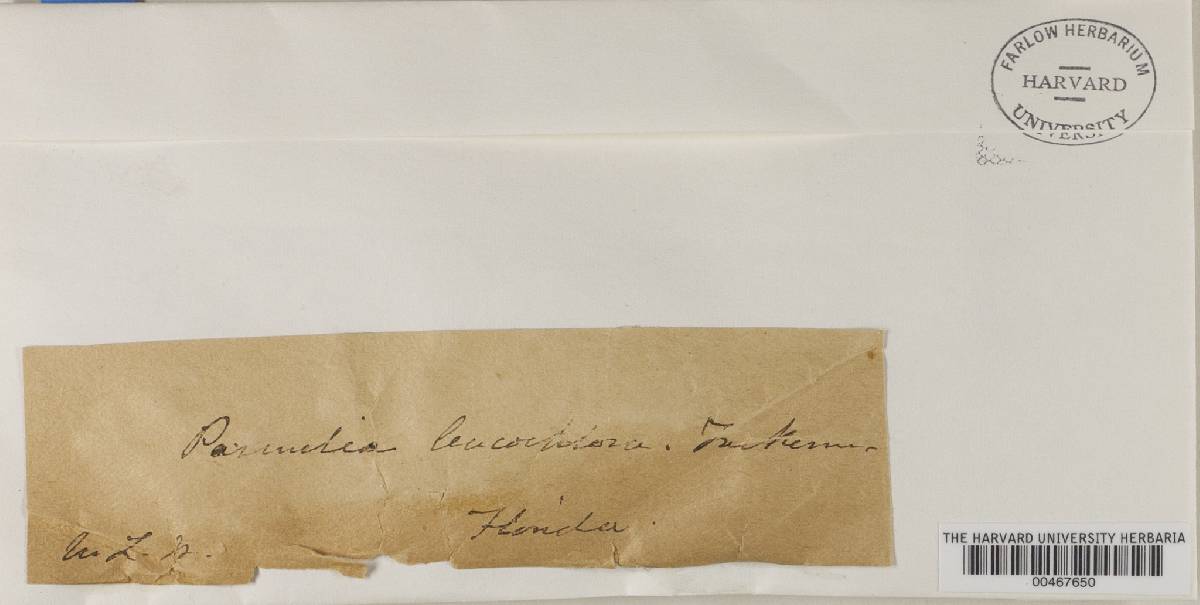 FARLOW HERBARIUM
HARVARD
UNIVERSITY
Parmelia leucochlora. Tuckerm.
Florida.
THE HARVARD UNIVERSITY HERBARIA
00467650